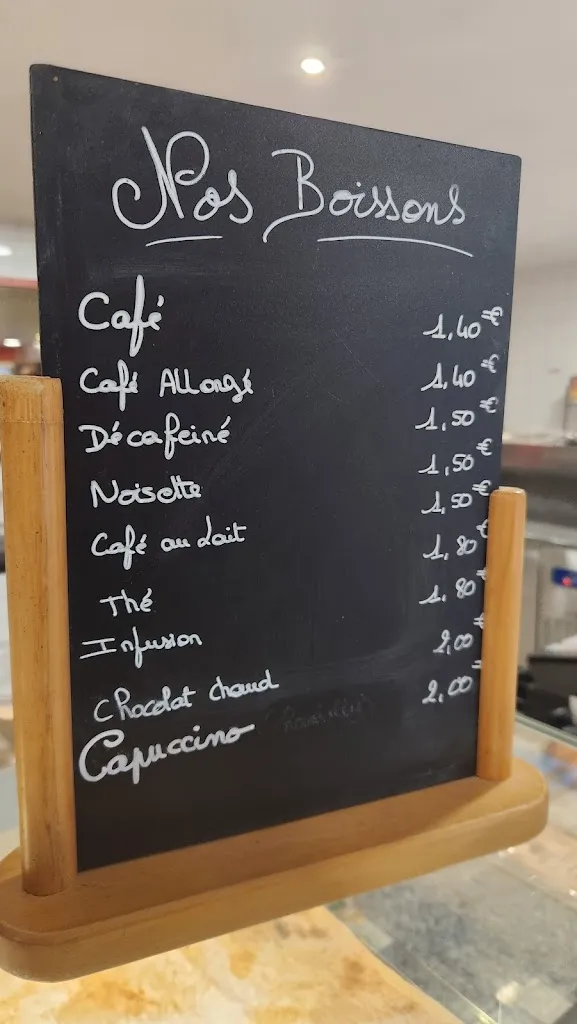 Nos Boissons
Café 1,40€
Café Allongé 1,40€
Décafeiné 1,50€
Noisette 1,50€
Café au Lait 1,50€
Thé 1,80€
Infusion 1,80€
Chocolat chaud 2,00€
Capuccino 2,00